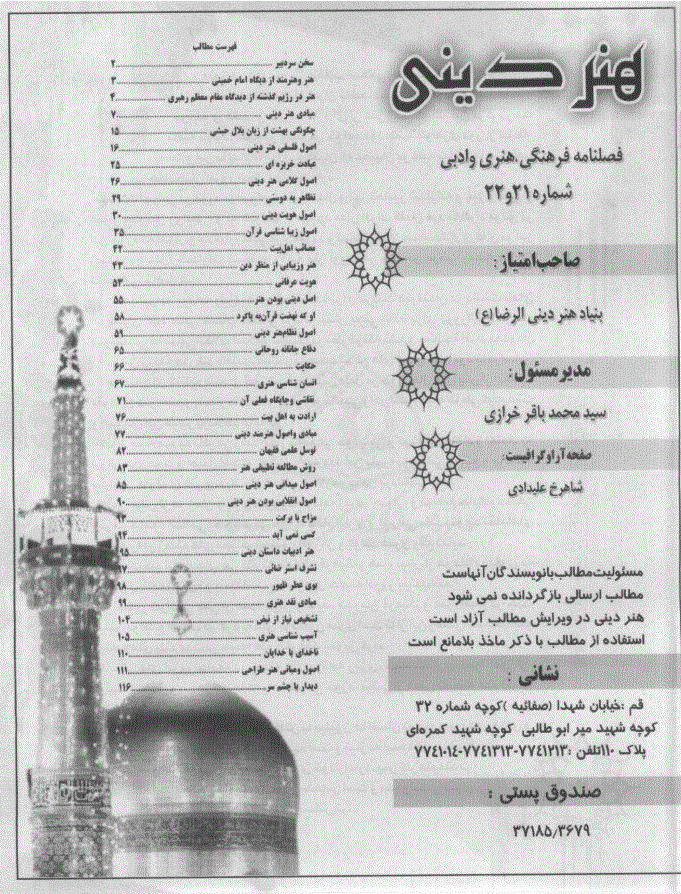 هنر دینی
فصلنامه فرهنگی،هنری وادبی
شماره ۲۱و۲۲
صاحب امتیاز :
بنیاد هنر دینی الرضا(ع)
مدیر مسئول :
سید محمد باقر خرازی
صفحه آرا و گرافیست:
شاهرخ علیدادی
مسئولیت مطالب بانویسندگان آنهاست
مطالب ارسالی بازگردانده نمی شود
هنر دینی در ویرایش مطالب آزاد است
استفاده از مطالب با ذکر ماخذ بلامانع است
نشانی :
قم :خیابان شهدا (صفائیه )کوچه شماره ۳۲
کوچه شهید میر ابو طالبی کوچه شهید کمره‌ای
پلاک ۱۱۰تلفن :۷۷۴۱۲۱۳-۷۷۴۱۳۱۳-۷۷۴۱۰۱۴
صندوق پستی :
۳۷۱۸۵/۳۶۷۹
فهرست مطالب
سخن سردبیر ..........۲
هنر وهنرمند از دیگاه امام خمینی ..........۳
هنر در رژیم گذشته از دیدگاه مقام معظم رهبری ..........۴
مبادی هنر دینی ..........۷
چگونگی بهشت از زبان بلال حبشی ..........۱۵
اصول فلسفی هنر دینی ..........۱۶
عیادت خربزه ای ..........۲۵
اصول کلامی هنر دینی ..........۲۶
تظاهر به دوستی ..........۲۹
اصول هویت دینی ..........۳۰
اصول زیبا شناسی قرآن ..........۳۵
مصائب اهل‌بیت ..........۴۲
هنر وزیبایی از منظر دین ..........۴۳
هویت عرفانی ..........۵۳
اصل دینی بودن هنر ..........۵۵
او که نهضت قرآن‌به پاکرد ..........۵۸
اصول نظام‌هنر دینی ..........۵۹
دفاع جانانه روحانی ..........۶۵
حکایت ..........۶۶
انسان شناسی هنری ..........۶۷
نقاشی وجایگاه فعلی آن ..........۷۱
ارادت به اهل بیت ..........۷۶
مبادی واصول هنرمند دینی ..........۷۷
توسل علمی فقیهان ..........۸۲
روش مطالعه تطبیقی هنر ..........۸۳
اصول میدانی هنر دینی ..........۸۵
اصول انقلابی بودن هنر دینی ..........۹۰
مزاح با برکت ..........۹۳
کسی نمی آید ..........۹۴
هنر ادبیات داستان دینی ..........۹۵
تشرف استر ثنائی ..........۹۷
بوی عطر ظهور ..........۹۸
مبادی نقد هنری ..........۹۹
تشخیص نیاز از نبض ..........۱۰۴
آسیب شناسی هنری ..........۱۰۵
ناخدای با خدایان ..........۱۱۰
اصول ومبانی هنر طراحی ..........۱۱۱
دیدار با چشم سر ..........۱۱۶